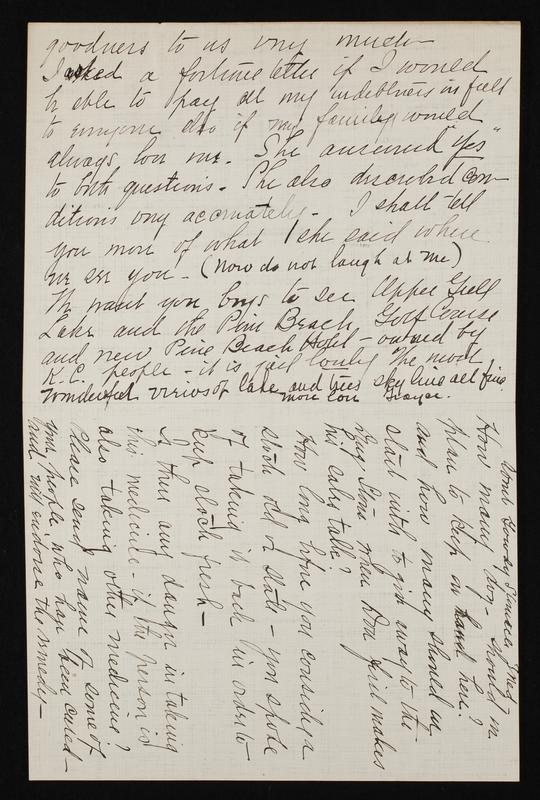 goodness to us very much
I asked a fortune teller if I would
be able to pay all my indebtness in full
to everyone also if my family would
always love me. She answered "Yes"
to both questions. She also described con-
ditions very accurately. I shall tell
you more of what she said when
we see you - (Now do not laugh at me)
We want you boys to see Upper Gull
Lake and the Pine Beach Golf Course
and new Pine Beach Hotel - owned by
K.C. people - it is just lovely the most
wonderful views of lake and trees sky line all fine
more love
How many doz - should we
plan to keep on hand here?
and how many should we
start with to give away to the
Drug Store when Don first makes
his sales talk?
How long have you consider a
stock old or stale - you spoke
of taking it back in order to
keep stock fresh -
Is there any danger in taking
this medicine - if the person is
also taking other medicine?
Please send name of some of
your people who have been cured -
and will endorse the remedy -